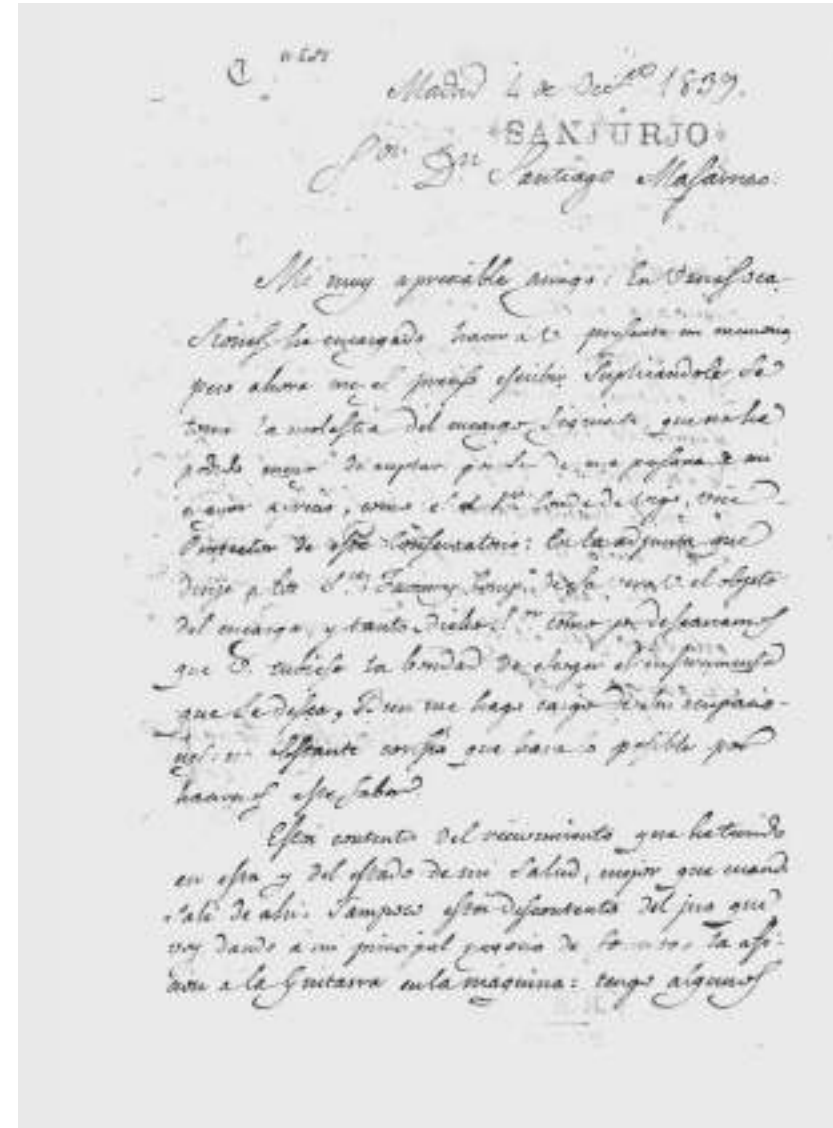 Madrid 4 de Dice.bre 1839.
SANJURJO
S.or D.n Santiago Masarnao.
Mi muy apreciable amigo: En varias oca-
siones he encargado hacer a V. presente mi memoria
pero ahora me es preciso escribir suplicándole se
tome la molestia del encargo siguiente que no he
podido de aceptar por ser de una persona de mi
mayor aprecio, como es el Conde de Vigo, vice
Protector de este Conservatorio: En la adjunta que
dirijo a los S.res y Comp.a de esa verá V. el objeto
del encargo, y tanto dicho S.or como yo desearíamos
que V. tuviese la bondad de escoger el instrumento
que se desea, Bien me hago cargo de sus ocupacio-
nes: no obstante confío que hará lo posible por
hacernos este fabor
Estoi contento del recivimiento que he tenido
en esta y del estado de mi salud, mejor que cuando
salí de ahí. Tampoco estoi descontento del jiro que
voy dando a mi principal negocio de la afi-
cion a la Guitarra en la máquina: tengo algunos